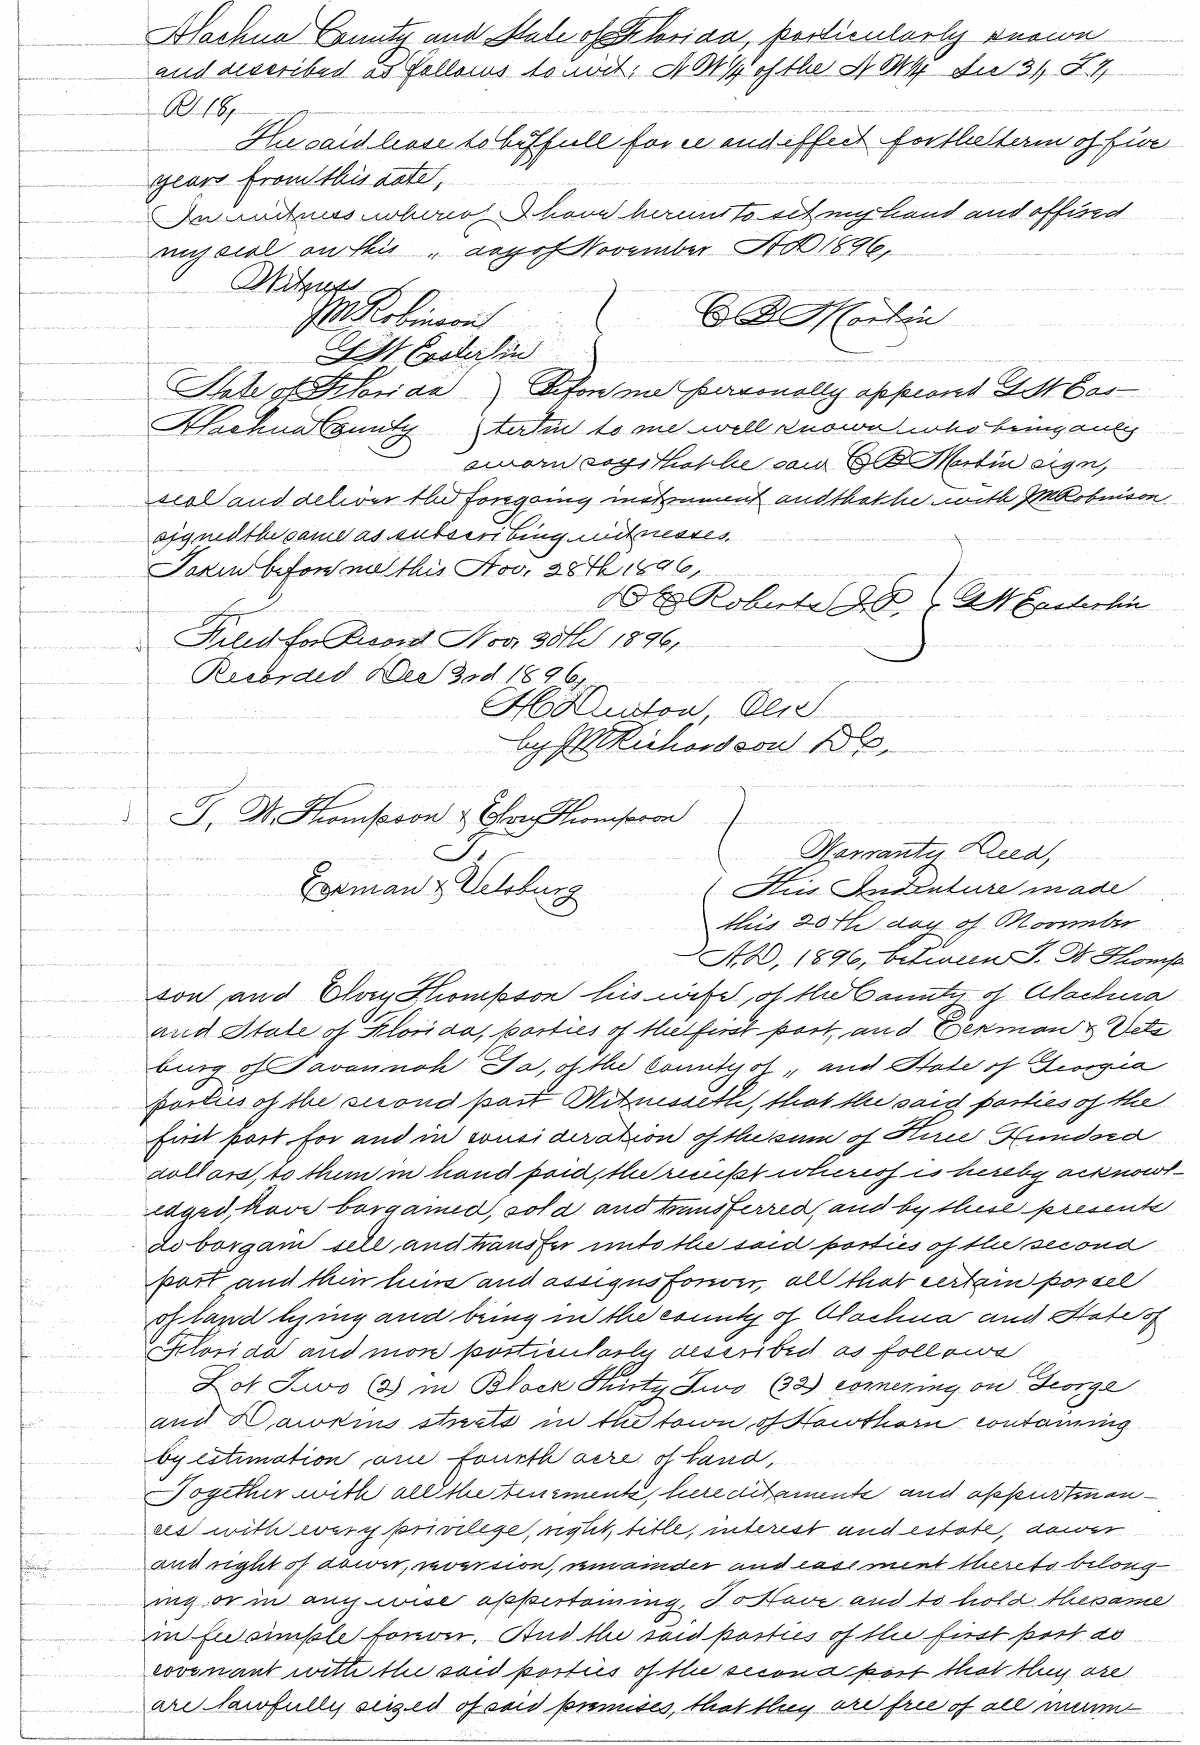 Alachua County and State of Florida, particularly known
and described as follows to wit; N W ¼ of the N W ¼ Sec 31, T 9,
R 18,
The said lease to be of full force and effect for the term of five
years from this date,
In witness whereof I have hereunto set my hand and affixed
my seal on this " day of November A D 1896,
Witness
J M Robinson
G W Easterlin
C B Martin
State of Florida
Alachua County
Before me personally appeared G W Eas-
terlin to me well known who being duly
sworn says that he saw C B Martin sign,
seal and deliver the foregoing instrument and that he with J M Robinson
signed the same as subscribing witnesses.
Taken before me this Nov. 28th 1896,
Roberts J.P. G W Easterlin
Filed for Record Nov, 30th 1896,
Recorded Dec 3rd 1896,
H C Denton, Clk
by J M Richardson D C,
T. W. Thompson & Elvey Thompson
To
Eckman & Vetsburg
Warranty Deed,
This Indenture made
this 20th day of November
A.D, 1896, between T. W Thomp
son and Elvey Thompson his wife, of the County of Alachua
and State of Florida, parties of the first part, and Eckman & Vets
burg of Savannah Ga, of the county of " and State of Georgia
parties of the second part Witnesseth, that the said parties of the
first part for and in consideration of the sum of Three Hundred
dollars, to them in hand paid, the receipt whereof is hereby acknowl-
edged, have bargained, sold and transferred, and by these presents
do bargain sell and transfer unto the said parties of the second
part and their heirs and assigns forever, all that certain parcel
of land lying and being in the county of Alachua and State of
Florida and more particularly described as follows
Lot Two (2) in Block Thirty Two (32) cornering on George
and Dawkins streets in the town of Hawthorn containing
by estimation one fourth acre of land,
Together with all the tenements, hereditaments and appurtenan-
ces with every privilege, right, title, interest and estate, dower
and right of dower, reversion, remainder and easement thereto belong-
ing or in any wise appertaining, To Have and to hold the same
in fee simple forever. And the said parties of the first part do
covenant with the said parties of the second part that they are
are lawfully seized of said premises, that they are free of all incum-